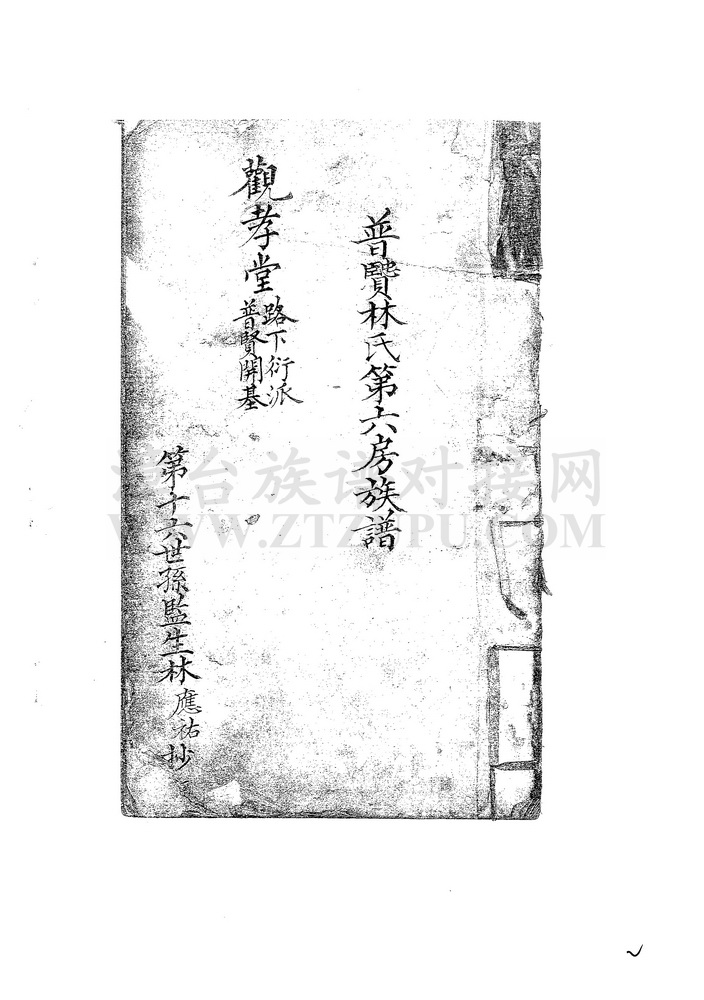 普賢林氏第六房族譜
觀孝堂
路下衍派
普賢開基
第十六世孫監生林應祐抄
台族谱对接网
WWW.ZTZUPU.COM